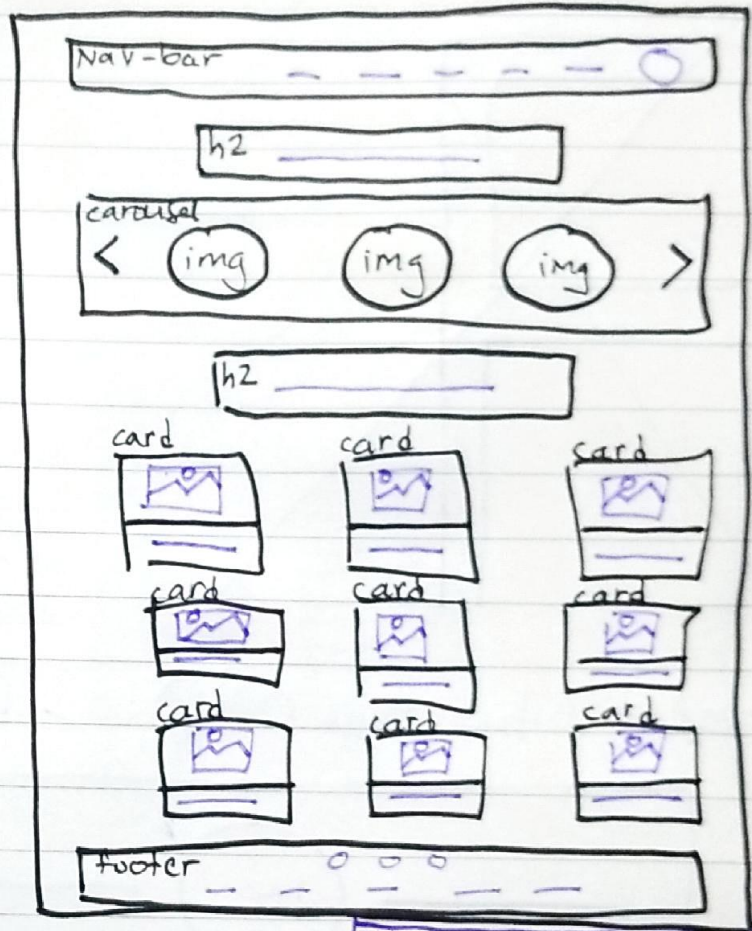 Nav-bar
h2
carousel
< img img img >
h2
card card card
card card card
card card card
footer